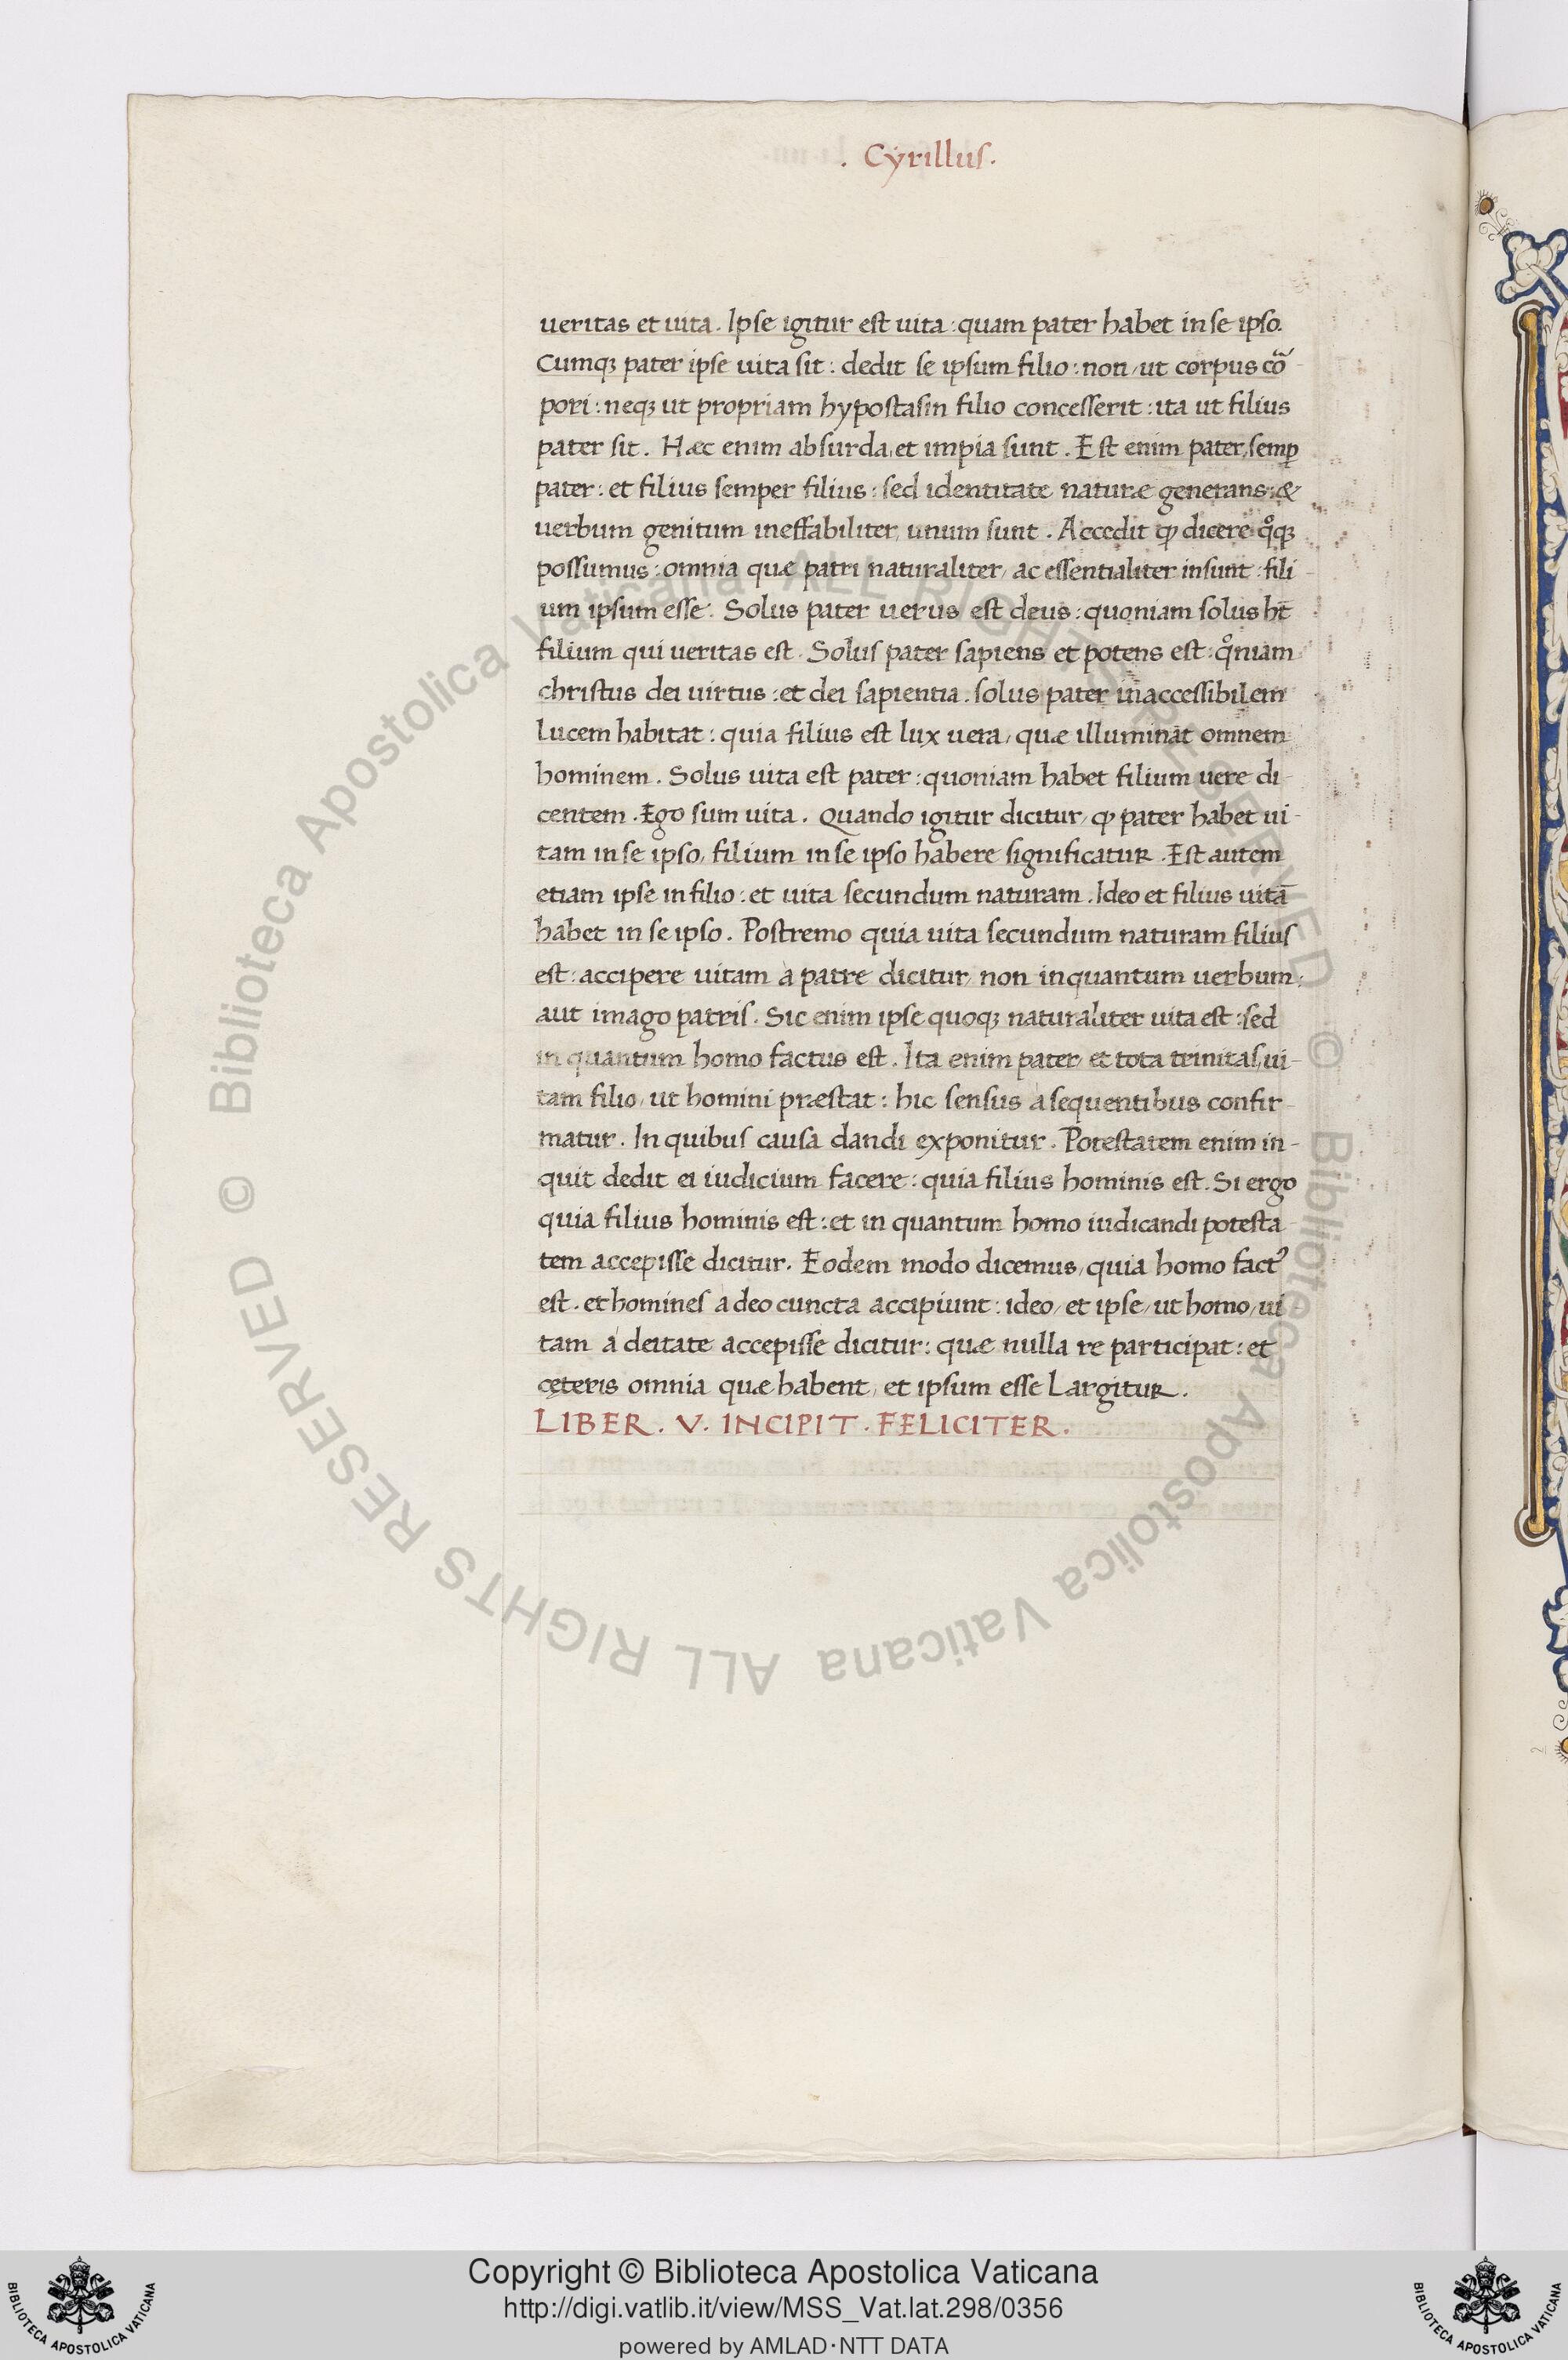 . Cyrillus.
ueritas et uita. Ipse igitur est uita: quam pater habet in se ipso.
Cumqȝ pater ipse uita sit: dedit se ipsum filio: non, ut corpus cõ
pori: neqȝ ut propriam hypostasin filio concesserit: ita ut filius
pater sit. Hæc enim absurda, et impia sunt. Est enim pater, semꝑ
pater: et filius semper filius: sed identitate naturæ generans: &
uerbum genitum ineffabiliter, unum sunt. Accedit ꝙ dicere qͦqȝ
possumus: omnia quæ patri naturaliter, ac essentialiter insunt: fili
um ipsum esse. Solus pater uerus est deus: quoniam solus ht̄
filium qui ueritas est. Solus pater sapiens et potens est: qͦniam
christus dei uirtus: et dei sapientia: solus pater inaccessibilem
lucem habitat: quia filius est lux uera, quæ illuminat omnem
hominem. Solus uita est pater: quoniam habet filium uere di-
centem. Ego sum uita. Quando igitur dicitur, ꝙ pater habet ui-
tam in se ipso, filium in se ipso habere significatur. Est autem
etiam ipse in filio: et uita secundum naturam. Ideo et filius uitā
habet in se ipso. Postremo quia uita secundum naturam filius
est: accipere uitam à patre dicitur, non inquantum uerbum:
aut imago patris. Sic enim ipse quoqȝ naturaliter uita est: sed
in quantum homo factus est. Ita enim pater, et tota trinitas, ui-
tam filio, ut homini præstat: hic sensus à sequentibus confir-
matur. In quibus causa dandi exponitur. Potestatem enim in-
quit dedit ei iudicium facere: quia filius hominis est. Si ergo
quia filius hominis est: et in quantum homo iudicandi potesta-
tem accepisse dicitur. Eodem modo dicemus, quia homo fact᾽
est. et homines a deo cuncta accipiunt: ideo, et ipse, ut homo, ui-
tam à deitate accepisse dicitur: quæ nulla re participat: et
cęteris omnia quæ habent, et ipsum esse Largitur.
LIBER. V. INCIPIT. FELICITER.
© Biblioteca Apostolica Vaticana ALL RIGHTS RESERVED
© Biblioteca Apostolica Vaticana ALL RIGHTS RESERVED
Copyright © Biblioteca Apostolica Vaticana
http://digi.vatlib.it/view/MSS_Vat.lat.298/0356
powered by AMLAD·NTT DATA
BIBLIOTECA APOSTOLICA VATICANA
BIBLIOTECA APOSTOLICA VATICANA